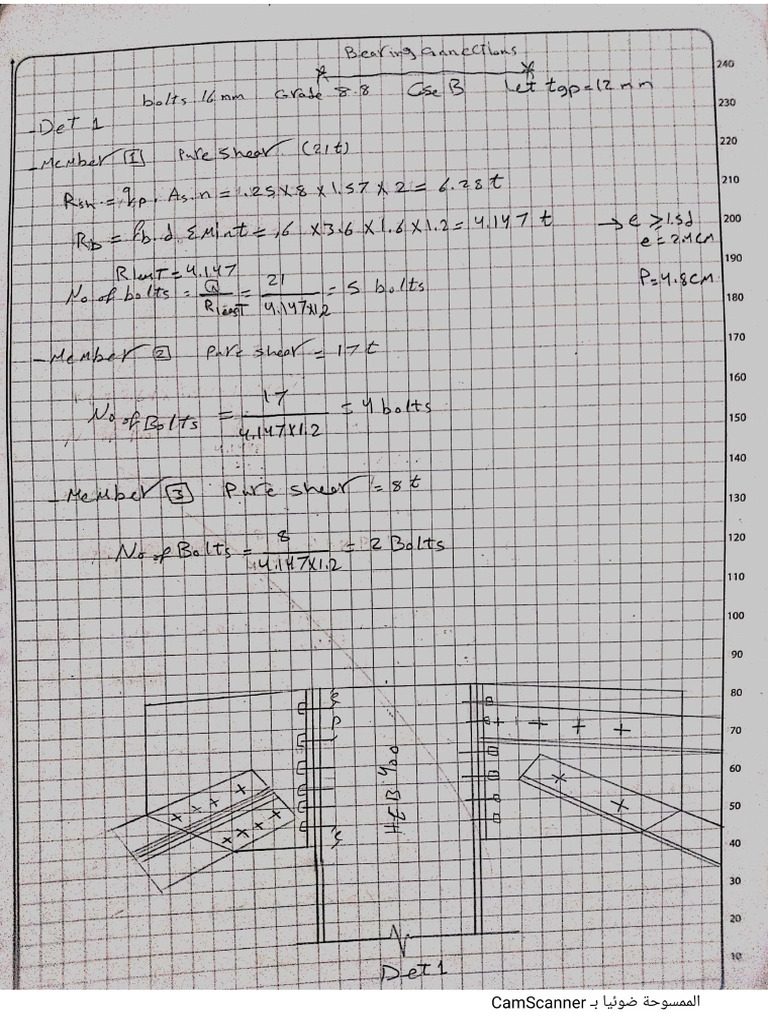 Bearing Connections
bolts 16 mm Grade 8.8 Case B Let tgp = 12 mm
- Det 1
- Member [1] Pure shear (21t)
Rsh = qp. As. n = .25 x 8 x 1.57 x 2 = 6.28 t
Rb = fb. d. Σ min t = .6 x 3.6 x 1.6 x 1.2 = 4.147 t → e ≥ 1.5d
e = 2.4 cm
R least = 4.147
P = 4.8 cm
No of bolts = Q / R least = 21 / 4.147 x 1.2 = 5 bolts
- Member [2] Pure shear = 17 t
No of Bolts = 17 / 4.147 x 1.2 = 4 bolts
- Member [3] Pure shear = 8 t
No of Bolts = 8 / 4.147 x 1.2 = 2 Bolts
e
P
HEB 400
e
Det 1
240
230
220
210
200
190
180
170
160
150
140
130
120
110
100
90
80
70
60
50
40
30
20
10
الممسوحة ضوئيا بـ CamScanner